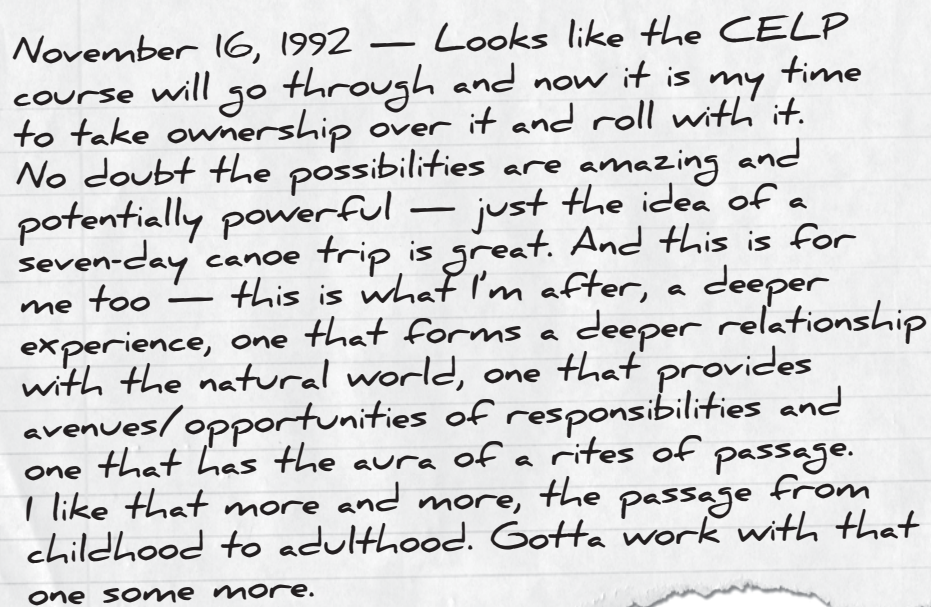 November 16, 1992 — Looks like the CELP
course will go through and now it is my time
to take ownership over it and roll with it.
No doubt the possibilities are amazing and
potentially powerful — just the idea of a
seven-day canoe trip is great. And this is for
me too — this is what I'm after, a deeper
experience, one that forms a deeper relationship
with the natural world, one that provides
avenues/opportunities of responsibilities and
one that has the aura of a rites of passage.
I like that more and more, the passage from
childhood to adulthood. Gotta work with that
one some more.